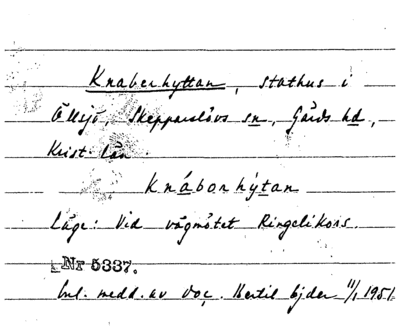 Knaberhyttan, stathus i
Öllsjö, Skepparslövs sn, Gärds hd,
Krist. län.
Knábarhýtan
Läge: Vid vägmötet Ringelikors.
Nr 5337.
Enl. medd. av doc. Bertil Ejder 11/1 1951.